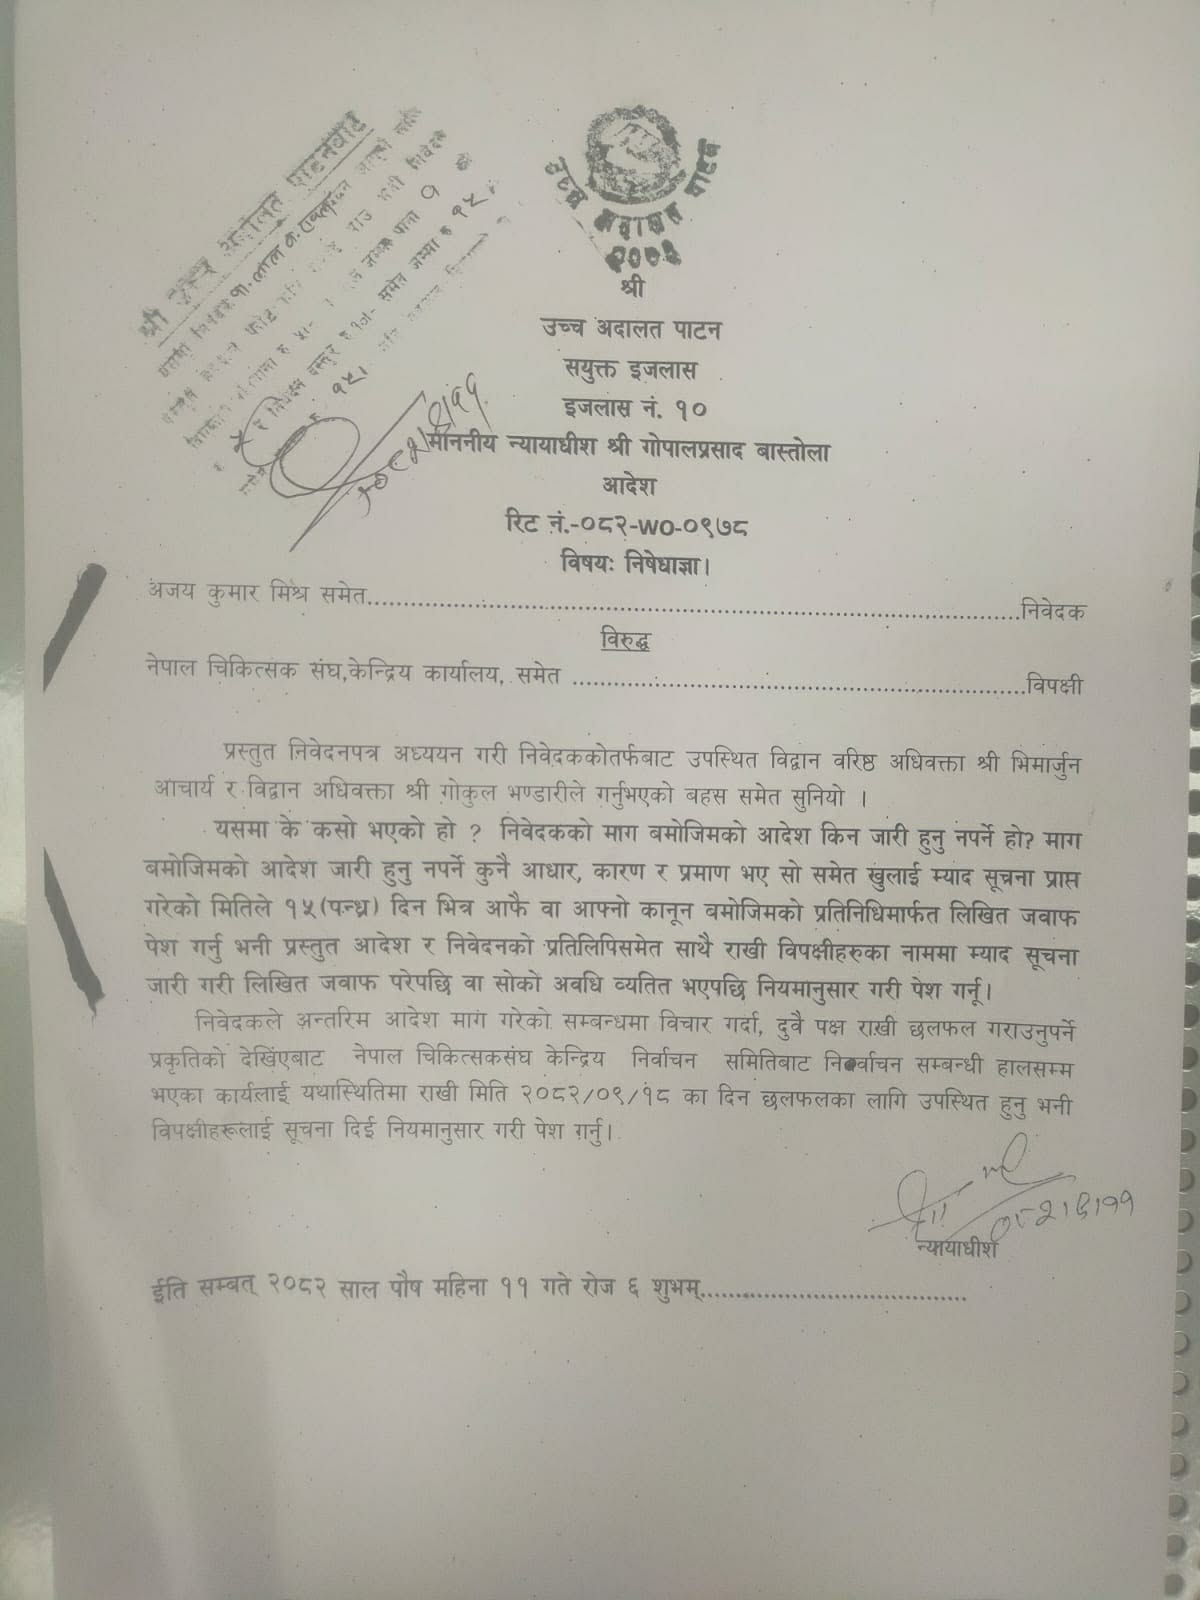 उच्च अदालत पाटन
२०७३
श्री उच्च अदालत पाटनबाट
श्री
उच्च अदालत पाटन
सयुक्त इजलास
इजलास नं. १०
माननीय न्यायाधीश श्री गोपालप्रसाद बास्तोला
आदेश
रिट नं.-०८२-WO-०९७८
विषयः निषेधाज्ञा।
अजय कुमार मिश्र समेत.......................................................................................निवेदक
विरुद्ध
नेपाल चिकित्सक संघ,केन्द्रिय कार्यालय, समेत ............................................................विपक्षी
प्रस्तुत निवेदनपत्र अध्ययन गरी निवेदककोतर्फबाट उपस्थित विद्वान वरिष्ठ अधिवक्ता श्री भिमार्जुन
आचार्य र विद्वान अधिवक्ता श्री गोकुल भण्डारीले गर्नुभएको बहस समेत सुनियो ।
यसमा के कसो भएको हो ? निवेदकको माग बमोजिमको आदेश किन जारी हुनु नपर्ने हो? माग
बमोजिमको आदेश जारी हुनु नपर्ने कुनै आधार, कारण र प्रमाण भए सो समेत खुलाई म्याद सूचना प्राप्त
गरेको मितिले १५(पन्ध्र) दिन भित्र आफै वा आफ्नो कानून बमोजिमको प्रतिनिधिमार्फत लिखित जवाफ
पेश गर्नु भनी प्रस्तुत आदेश र निवेदनको प्रतिलिपिसमेत साथै राखी विपक्षीहरुका नाममा म्याद सूचना
जारी गरी लिखित जवाफ परेपछि वा सोको अवधि व्यतित भएपछि नियमानुसार गरी पेश गर्नू।
निवेदकले अन्तरिम आदेश माग गरेको सम्बन्धमा विचार गर्दा, दुवै पक्ष राखी छलफल गराउनुपर्ने
प्रकृतिको देखिएबाट नेपाल चिकित्सकसंघ केन्द्रिय निर्वाचन समितिबाट निर्वाचन सम्बन्धी हालसम्म
भएका कार्यलाई यथास्थितिमा राखी मिति २०८२/०९/१८ का दिन छलफलका लागि उपस्थित हुनु भनी
विपक्षीहरूलाई सूचना दिई नियमानुसार गरी पेश गर्नु।
न्यायाधीश
ईति सम्बत् २०८२ साल पौष महिना ११ गते रोज ६ शुभम्......................................